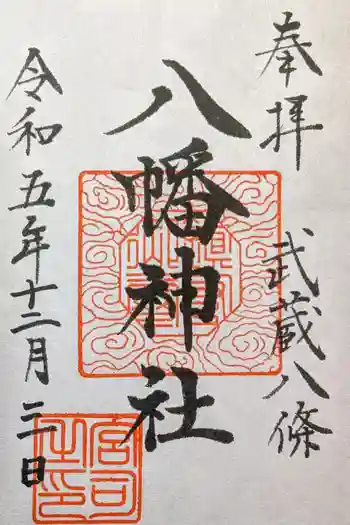 奉拝
武蔵八條
八幡神社
令和五年十二月二日
宮司之印